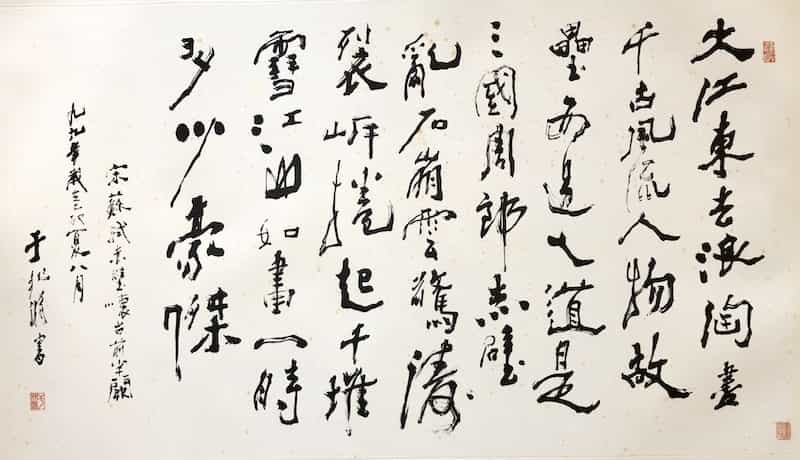 大江東去浪淘盡
千古風流人物故
壘西邊人道是
三國周郎赤壁
亂石崩雲驚濤
裂岸捲起千堆
雪江山如畫一時
多少豪傑
宋蘇軾赤壁懷古前半闋
九九年歲夏八月
于書